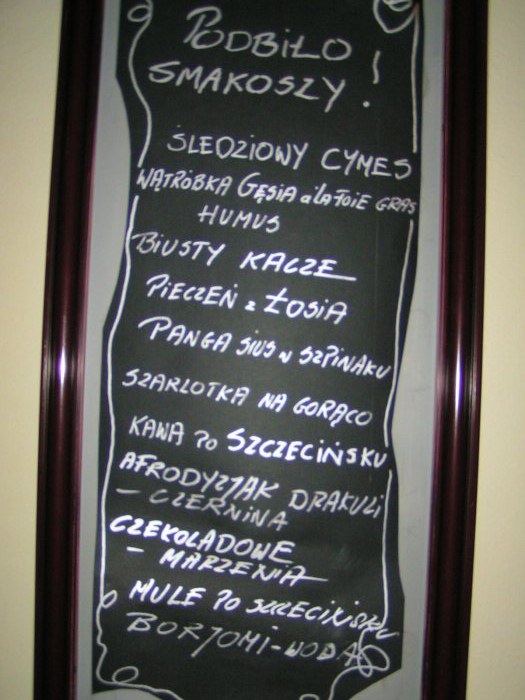 PODBIŁO
SMAKOSZY!
ŚLEDZIOWY CYMES
WĄTRÓBKA GĘSIA a'la FOIE GRAS
HUMUS
BIUSTY KACZE
PIECZEŃ z ŁOSIA
PANGA SIUS W SZPINAKU
SZARLOTKA NA GORĄCO
KAWA PO SZCZECIŃSKU
AFRODYZJAK DRAKULI
- CZERNINA
CZEKOLADOWE
- MARZENIA
MULE PO SZCZECIŃSKU
BORJOMI-WODA